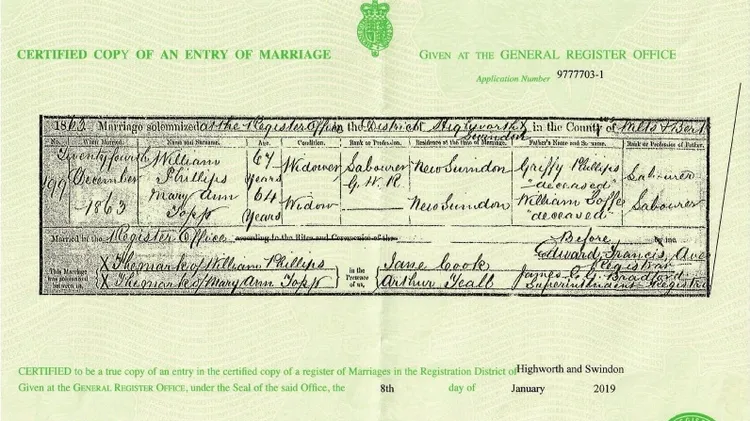 CERTIFIED COPY OF AN ENTRY OF MARRIAGE
GIVEN AT THE GENERAL REGISTER OFFICE
Application Number 9777703-1
1863 Marriage solemnized at the Register Office in the District of Highworth & Swindon in the County of Wilts & Berk
No. When Married. Name and Surname. Age. Condition. Rank or Profession. Residence at the Time of Marriage. Father's Name and Surname. Rank or Profession of Father.
199 Twenty fourth December 1863
William Phillips 67 Years Widower Labourer G.W.R. New Swindon Griffy Phillips "deceased" Labourer
Mary Ann Topp 64 Years Widow New Swindon William "deceased" Labourer
Married in the Register Office according to the Rites and Ceremonies of the Before by me,
This Marriage was solemnized between us,
X The mark of William Phillips
X The mark of Mary Ann Topp
in the Presence of us,
Jane Cook
Arthur
Edward Francis
Registrar
James C. G. Bradford
Superintendent Registr
CERTIFIED to be a true copy of an entry in the certified copy of a register of Marriages in the Registration District of Highworth and Swindon
Given at the GENERAL REGISTER OFFICE, under the Seal of the said Office, the 8th day of January 2019